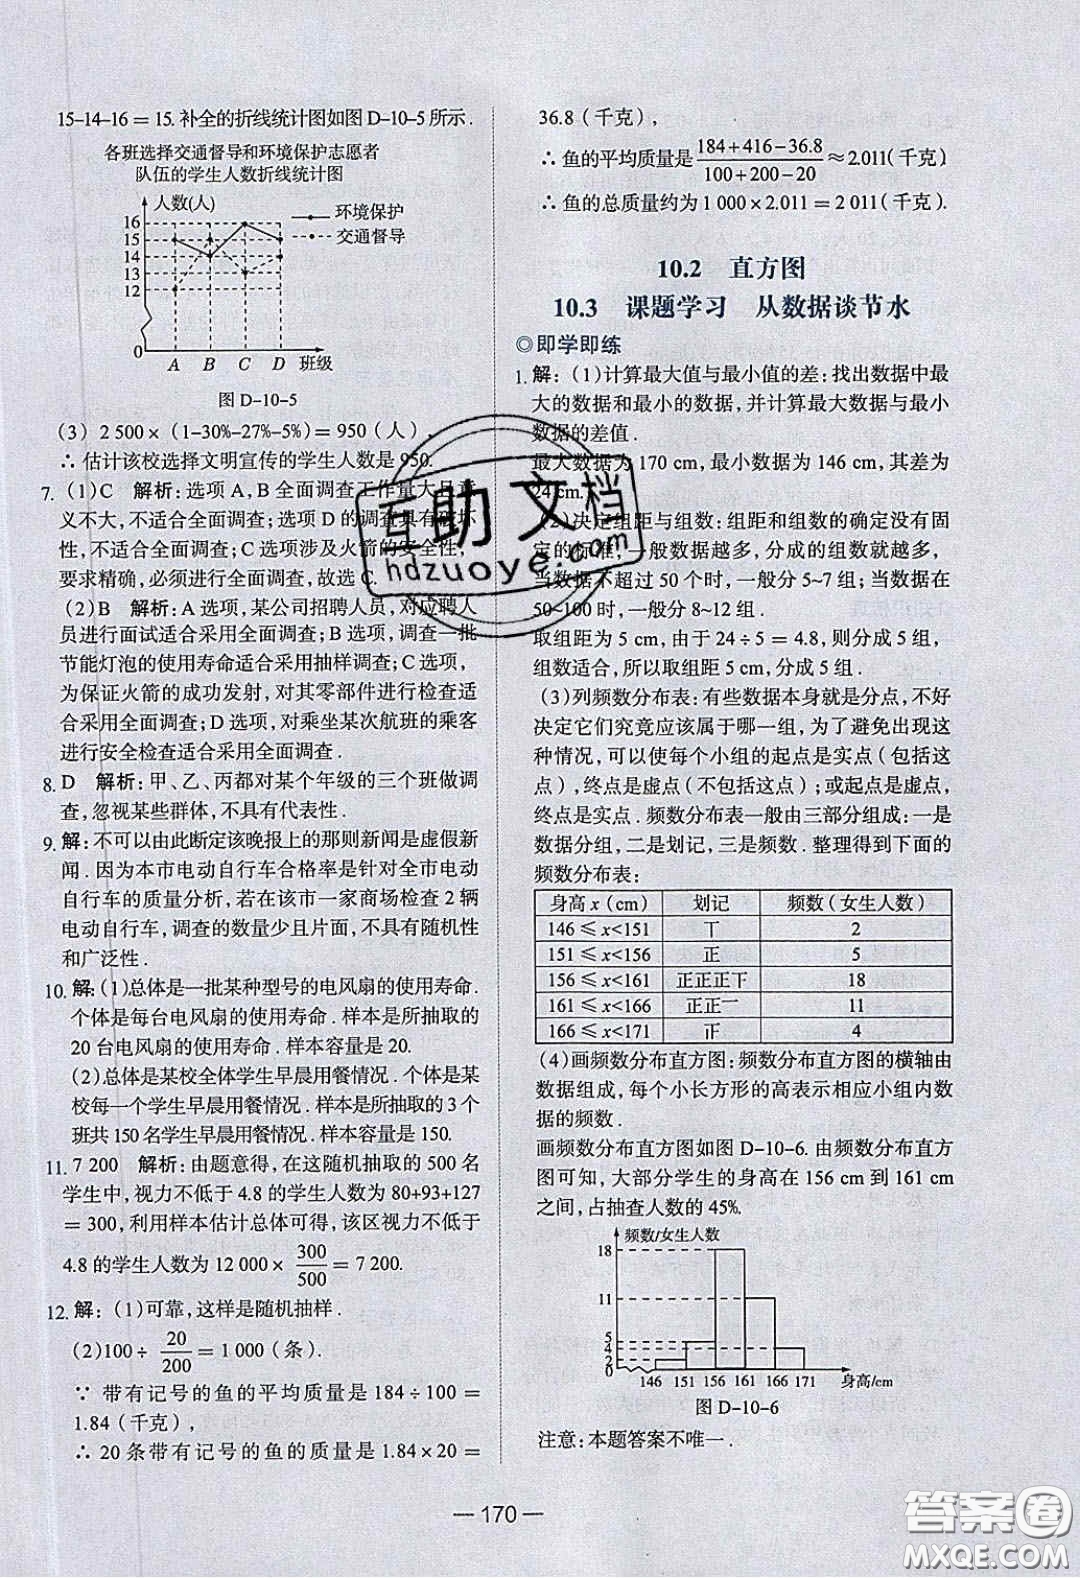 15-14-16＝15. 补全的折线统计图如图 D-10-5 所示.
各班选择交通督导和环境保护志愿者
队伍的学生人数折线统计图
人数(人)
环境保护
交通督导
16
15
14
13
12
0
A B C D 班级
图 D-10-5
(3) 2 500×(1-30%-27%-5%)＝950(人).
∴ 估计该校选择文明宣传的学生人数是 950.
7. (1)C 解析：选项 A，B 全面调查工作量大且意
义不大，不适合全面调查；选项 D 的调查具有破坏
性，不适合全面调查；选项涉及火箭的安全性，
要求精确，必须进行全面调查，故选 C.
(2)B 解析：A 选项，某公司招聘人员，对应聘人
员进行面试适合采用全面调查；B 选项，调查一批
节能灯泡的使用寿命适合采用抽样调查；C 选项，
为保证火箭的成功发射，对其零部件进行检查适
合采用全面调查；D 选项，对乘坐某次航班的乘客
进行安全检查适合采用全面调查.
8. D 解析：甲、乙、丙都对某个年级的三个班做调
查，忽视某些群体，不具有代表性.
9. 解：不可以由此断定该晚报上的那则新闻是虚假新
闻. 因为本市电动自行车合格率是针对全市电动
自行车的质量分析，若在该市一家商场检查 2 辆
电动自行车，调查的数量少且片面，不具有随机性
和广泛性.
10. 解：(1)总体是一批某种型号的电风扇的使用寿命.
个体是每台电风扇的使用寿命. 样本是所抽取的
20 台电风扇的使用寿命. 样本容量是 20.
(2)总体是某校全体学生早晨用餐情况. 个体是某
校每一个学生早晨用餐情况. 样本是所抽取的 3 个
班共 150 名学生早晨用餐情况. 样本容量是 150.
11. 7 200 解析：由题意得，在这随机抽取的 500 名
学生中，视力不低于 4.8 的学生人数为 80+93+127
＝300，利用样本估计总体可得，该区视力不低于
4.8 的学生人数为 12 000× 300/500 ＝7 200.
12. 解：(1)可靠，这样是随机抽样.
(2)100÷ 20/200 ＝1 000(条).
∵ 带有记号的鱼的平均质量是 184÷100＝
1.84(千克)，
∴ 20 条带有记号的鱼的质量是 1.84×20＝
36.8(千克)，
∴ 鱼的平均质量是 184+416-36.8/100+200-20 ≈2.011(千克)
∴ 鱼的总质量约为 1 000×2.011＝2 011(千克).
10.2 直方图
10.3 课题学习 从数据谈节水
◎即学即练
1. 解：(1)计算最大值与最小值的差：找出数据中最
大的数据和最小的数据，并计算最大数据与最小
数据的差值.
最大数据为 170 cm，最小数据为 146 cm，其差为
24 cm.
(2)决定组距与组数：组距和组数的确定没有固
定的标准，一般数据越多，分成的组数就越多，
当数据不超过 50 个时，一般分 5~7 组；当数据在
50~100 时，一般分 8~12 组.
取组距为 5 cm，由于 24÷5＝4.8，则分成 5 组，
组数适合，所以取组距 5 cm，分成 5 组.
(3)列频数分布表：有些数据本身就是分点，不好
决定它们究竟应该属于哪一组，为了避免出现这
种情况，可以使每个小组的起点是实点(包括这
点)，终点是虚点(不包括这点)；或起点是虚点，
终点是实点. 频数分布表一般由三部分组成：一是
数据分组，二是划记，三是频数. 整理得到下面的
频数分布表：
身高 x (cm) 划记 频数(女生人数)
146≤x<151 丅 2
151≤x<156 正 5
156≤x<161 正正正下 18
161≤x<166 正正一 11
166≤x<171 正 4
(4)画频数分布直方图：频数分布直方图的横轴由
数据组成，每个小长方形的高表示相应小组内数
据的频数.
画频数分布直方图如图 D-10-6. 由频数分布直方
图可知，大部分学生的身高在 156 cm 到 161 cm
之间，占抽查人数的 45%.
频数/女生人数
18
11
5
4
2
0
146 151 156 161 166 171 身高/cm
图 D-10-6
注意：本题答案不唯一.
— 170 —
互助文档
hdzuoye.com
答案圈
MXQE.COM